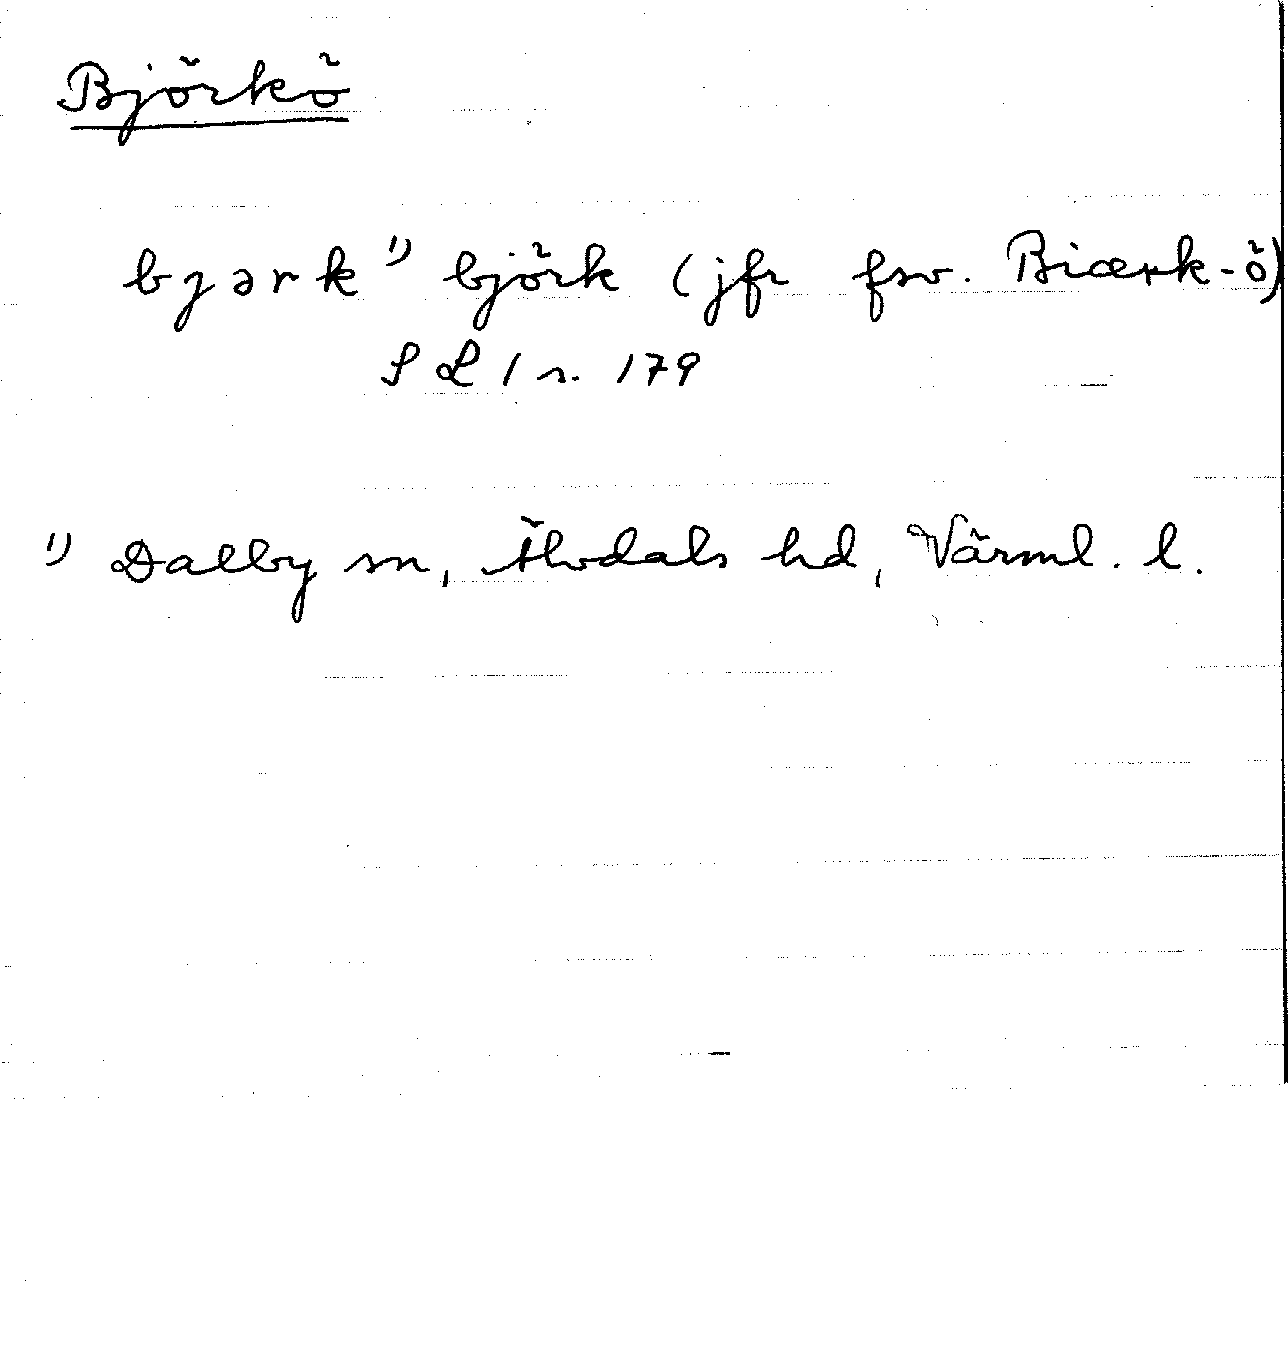 Björkö
bjərk ¹⁾ björk (jfr fsv. Biærk-ö)
SL 1 s. 179
¹⁾ Dalby sn, Älvdals hd, Värml. l.